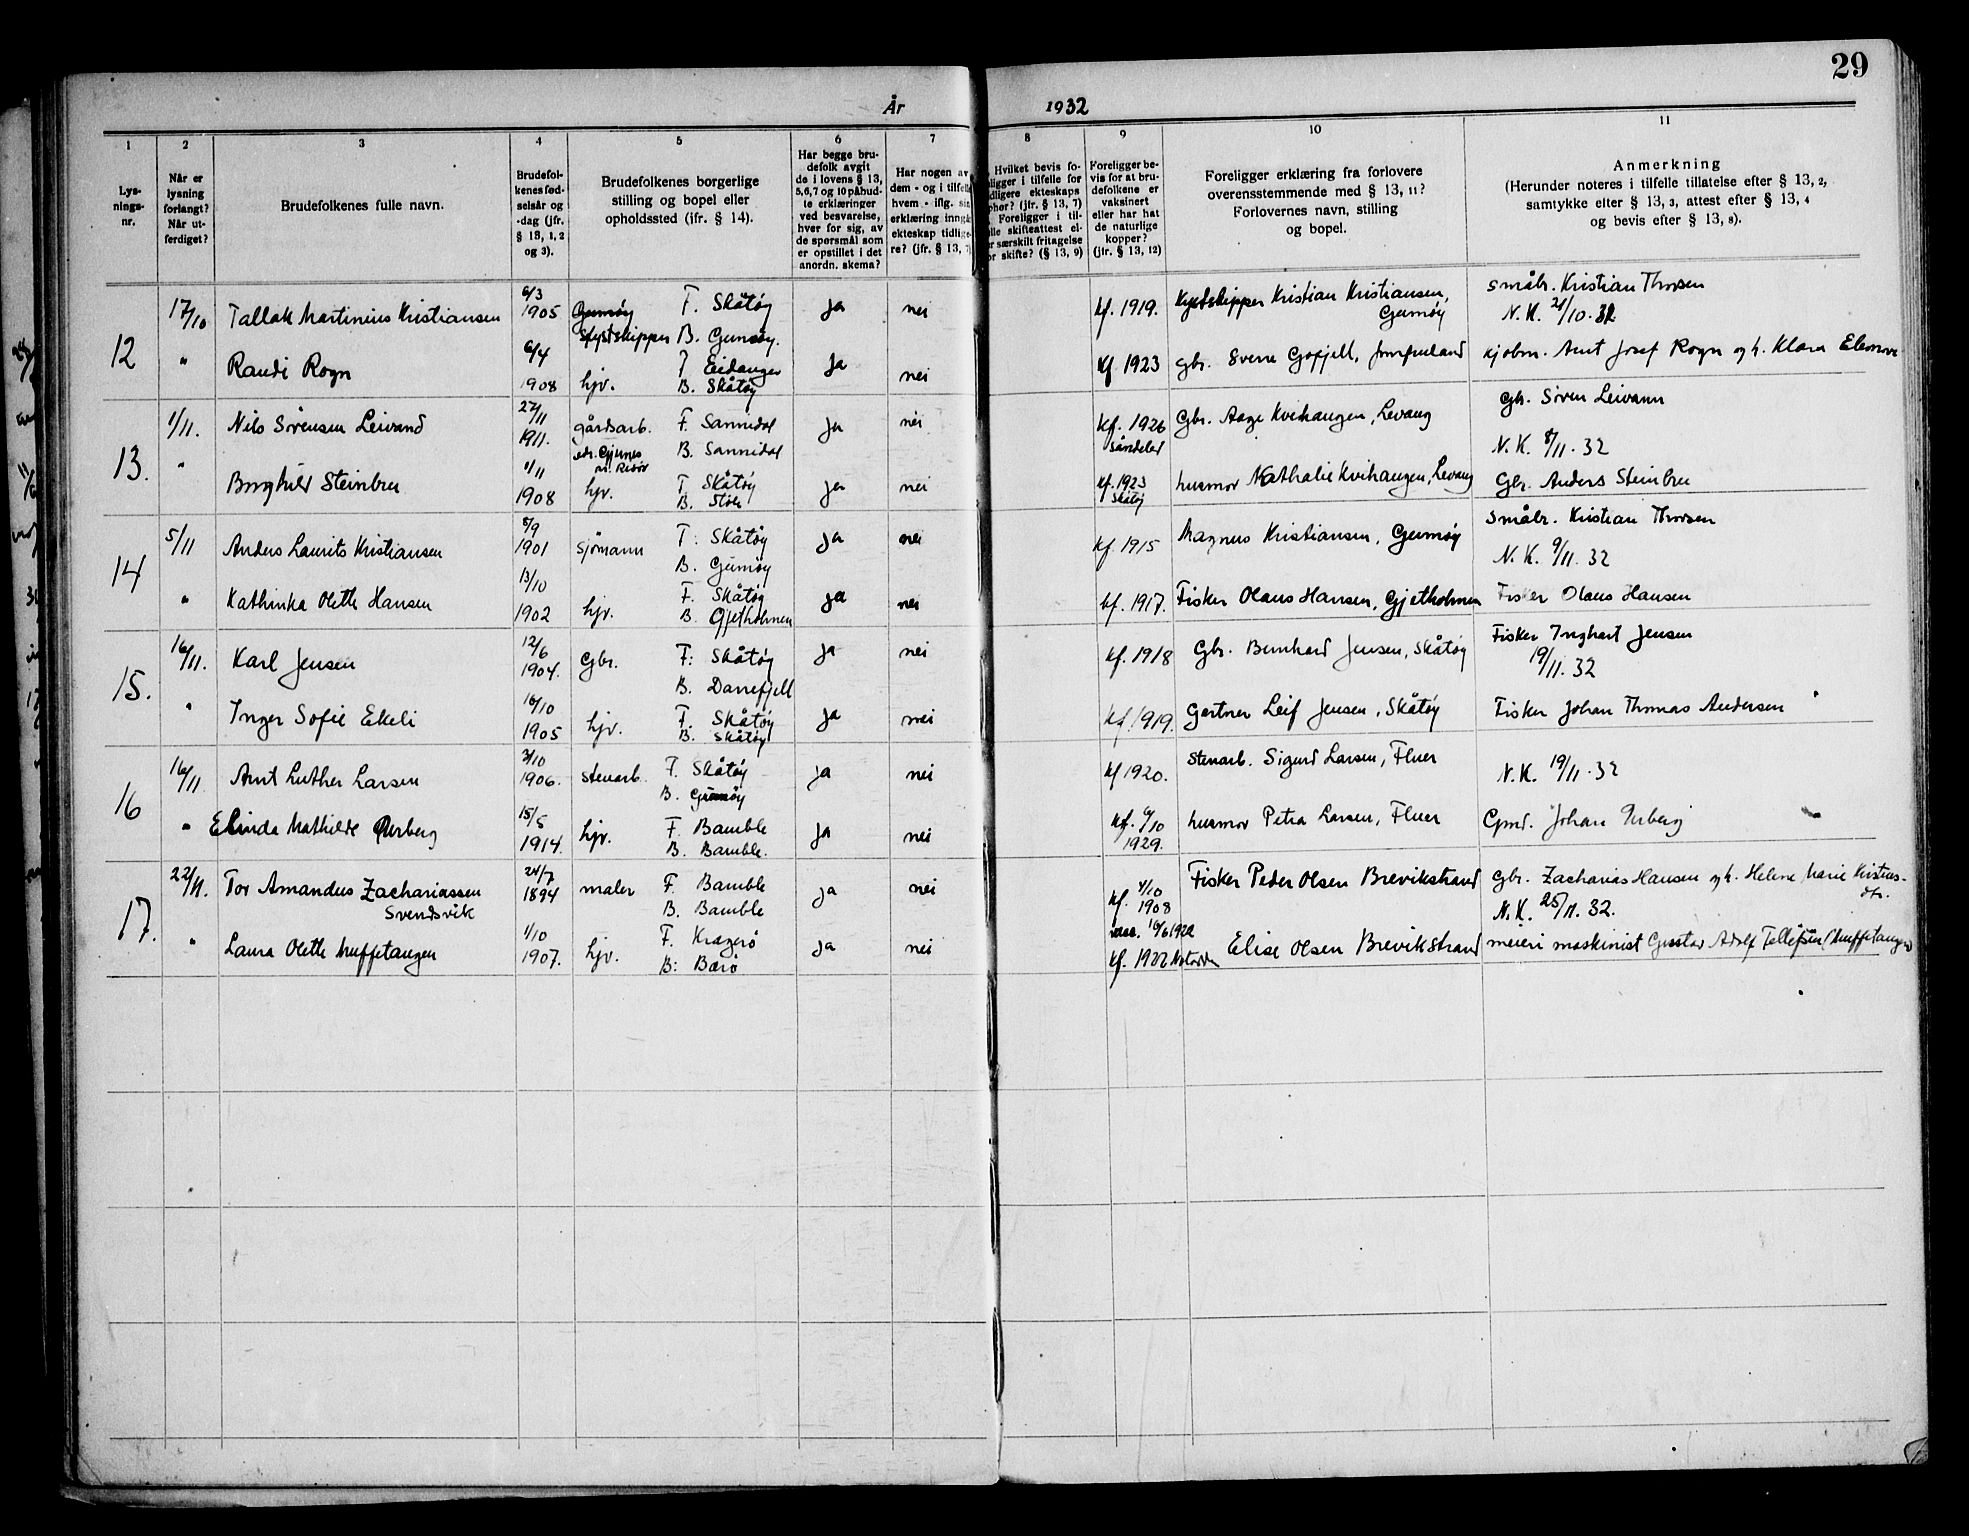 29
År 1932
1 2 3 4 5 6 7 8 9 10 11
Lys-
nings-
nr.
Når er
lysning
forlangt?
Når ut-
ferdiget?
Brudefolkenes fulle navn.
Brudefol-
kenes fød-
selsår og
-dag (jfr.
§ 13, 1, 2
og 3).
Brudefolkenes borgerlige
stilling og bopel eller
opholdssted (jfr. § 14).
Har begge bru-
defolk avgit
de i lovens § 13,
5,6,7 og 10 påbud-
te erklæringer
ved besvarelse,
hver for sig, av
de spørsmål som
er opstillet i det
anordn. skema?
Har nogen av
dem - og i tilfelle
hvem - iflg. sin
erklæring inngått
ekteskap tidlige-
re? (jfr. § 13, 7)
Hvilket bevis fo-
religger i tilfelle for
tidligere ekteskaps
ophør? (jfr. § 13, 7)
Foreligger i til-
felle skifteattest el-
ler særskilt fritagelse
for skifte? (§ 13, 9)
Foreligger be-
vis for at bru-
defolkene er
vaksinert
eller har hat
de naturlige
kopper?
(jfr. § 13, 12)
Foreligger erklæring fra forlovere
overensstemmende med § 13, 11?
Forlovernes navn, stilling
og bopel.
Anmerkning
(Herunder noteres i tilfelle tillatelse efter § 13, 2,
samtykke efter § 13, 3, attest efter § 13, 4
og bevis efter § 13, 8).
12 17/10 Tallak Martinius Kristiansen 6/3 1905 Gumøy kystskipper F. Skåtøy B. Gumøy. ja nei kf. 1919. Kystskipper Kristian Kristiansen, Gumøy småbr. Kristian Thorsen N.K. 21/10. 32
" Randi Rogn 6/4 1908 hjv. F Eidanger B. Skåtøy ja nei kf. 1923 gbr. Sverre Gofjell, Jomfruland kjøbm. Arnt Josef Rogn og h. Klara Eleonore
13. 1/11. Nils Sørensen Leivand 27/11 1911. gårdsarb. F. Sannidal B. Sannidal ja nei kf. 1926 Søndeled Gbr. Aage Kvihaugen, Levang Gbr. Søren Leivann N.K. 8/11. 32
" Borghild Steinbru 1/11 1908 hjv. F Skåtøy B. Støle ja nei kf. 1923 Skåtøy husmor Nathalie Kvihaugen, Levang Gbr. Anders Steinbru
14 5/11 Anders Laurits Kristiansen 8/9 1901 sjømann F. Skåtøy B. Gumøy ja nei kf. 1915 Magnus Kristiansen, Gumøy Småbr. Kristian Thorsen N.K. 9/11. 32
" Kathinka Olette Hansen 13/10 1902 hjv. F. Skåtøy B. Gjetholmen ja nei kf. 1917. Fisker Olaus Hansen, Gjetholmen Fisker Olaus Hansen
15. 16/11. Karl Jensen 12/6 1904. gbr. F: Skåtøy B. Danefjell ja nei kf. 1918 Gbr. Bernhard Jensen, Skåtøy Fisker Inghart Jensen 19/11. 32
" Inger Sofie Ekeli 16/10 1905 hjv. F. Skåtøy B. Skåtøy ja nei kf. 1919. Gartner Leif Jensen, Skåtøy Fisker Johan Thomas Andersen
16 16/11 Arnt Luther Larsen 3/10 1906. stenarb. F. Skåtøy B. Gumøy ja nei kf 1920. Stenarb. Sigurd Larsen, Fluer N.K. 19/11. 32
" Elinda Mathilde 15/5 1914. hjv. F. Bamble B. Bamble. ja nei kf. 6/10 1929. husmor Petra Larsen, Fluer Gmd. Johan
17. 22/11. Tor Amandus Zachariassen Svendsvik 24/7 1894 maler F. Bamble B. Bamble ja nei kf. 4/10 1908 Fisker Peder Olsen Brevikstrand Gbr. Zacharias Hansen og h. Helene Marie Kristens- dtr. N.K. 25/11. 32.
" Laura Olette Muffetangen 1/10 1907. hjv. F. Kragerø B: Bærø ja nei vac. 16/6 1922 kf. 1922 Notodden Elise Olsen Brevikstrand meieri maskinist Gustav Adolf Tellefsen (Muffetangen)